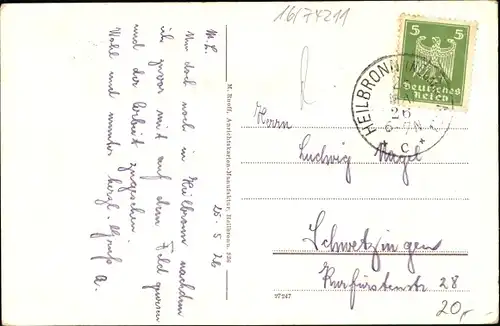 16/74211
M. L.
25. 5. 26
Nun doch noch in Heilbronn nachdem
ich zuvor mit auf dem Feld gewesen
und der Arbeit zugesehen.
Wohl und munter herzl. Gruß A.
M. Ruoff, Ansichtskarten-Manufaktur, Heilbronn. 236
5 5
Deutsches
Reich
HEILBRONN
26
6-7 N
* C *
Herrn
Ludwig Nagel
Schwetzingen
Kurfürstenstr 28
27247
20,-